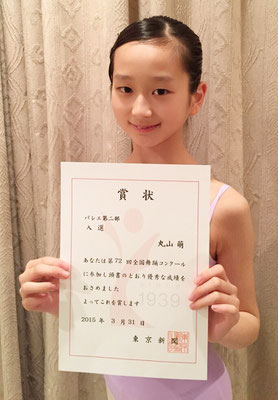 賞状
バレエ第二部
入選
丸山 萌
あなたは第72回全国舞踊コンクール
に参加し頭書のとおり優秀な成績を
おさめました
よってこれを賞します
1939
2015年 3月31日
東京新聞